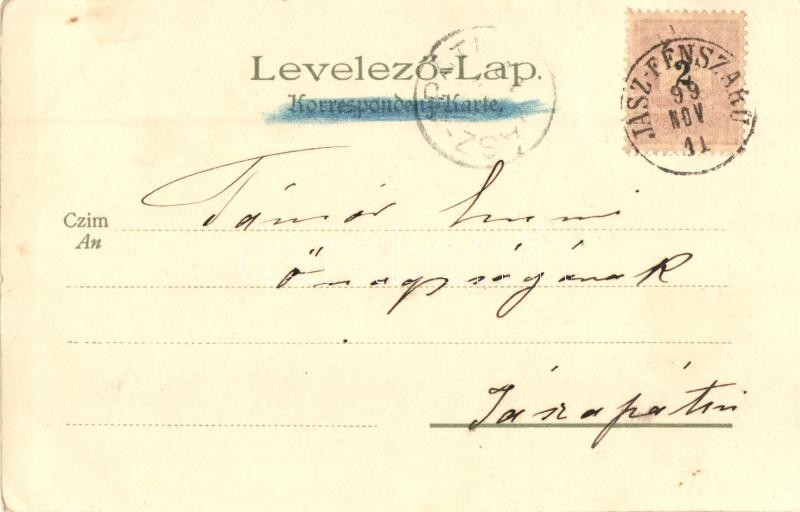 Levelező-Lap.
Korrespondenz-Karte.
JÁSZ-FÉNSZARU
2
99
NOV
11
JÁSZ-
Czim
An
Emmi
Őnagyságának
Jászapátin